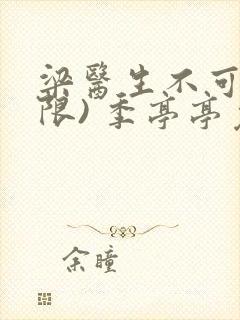 梁醫生不可
限)季亭亭
余瞳